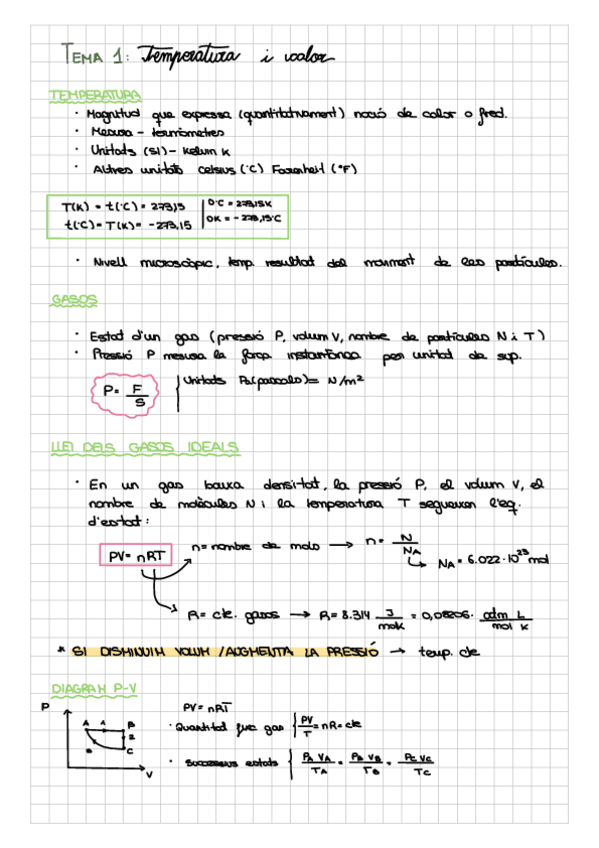 TEMA 1: Temperatura i calor
TEMPERATURA
· Magnitud que expressa (quantitativament) noció de calor o fred.
· Mesura - termòmetres
· Unitats (SI) - Kelvin K
· Altres unitats celsius (°C) Farenheit (°F)
T(K) = t(°C) = 273,15 | 0°C = 273,15K
t(°C) = T(K) = -273,15 | 0K = -273,15°C
· Nivell microscòpic, temp. resultat del moviment de les partícules.
GASOS
· Estat d'un gas (pressió P, volum V, nombre de partícules N i T)
· Pressió P mesura la força instantània per unitat de sup.
P = F/S | Unitats Pa (pascals) = N/m²
LLEI DELS GASOS IDEALS
· En un gas baixa densitat, la pressió P, el volum V, el
nombre de molècules N i la temperatura T segueixen l'eq.
d'estat:
PV = nRT n = nombre de mols → n = N/NA
↳ NA = 6.022·10²³ mol
R = cte. gasos → R = 8.314 J/molK = 0,08206 · atm L/mol K
* SI DISMINUIM VOLUM / AUGMENTA LA PRESSIÓ → temp. cte
DIAGRAM P-V
P V A 1 B 2 C
PV = nRT
· Quantitat fixe gas { PV/T = nR = cte
· Successius estats { PA VA/TA = PB VB/TB = PC VC/TC